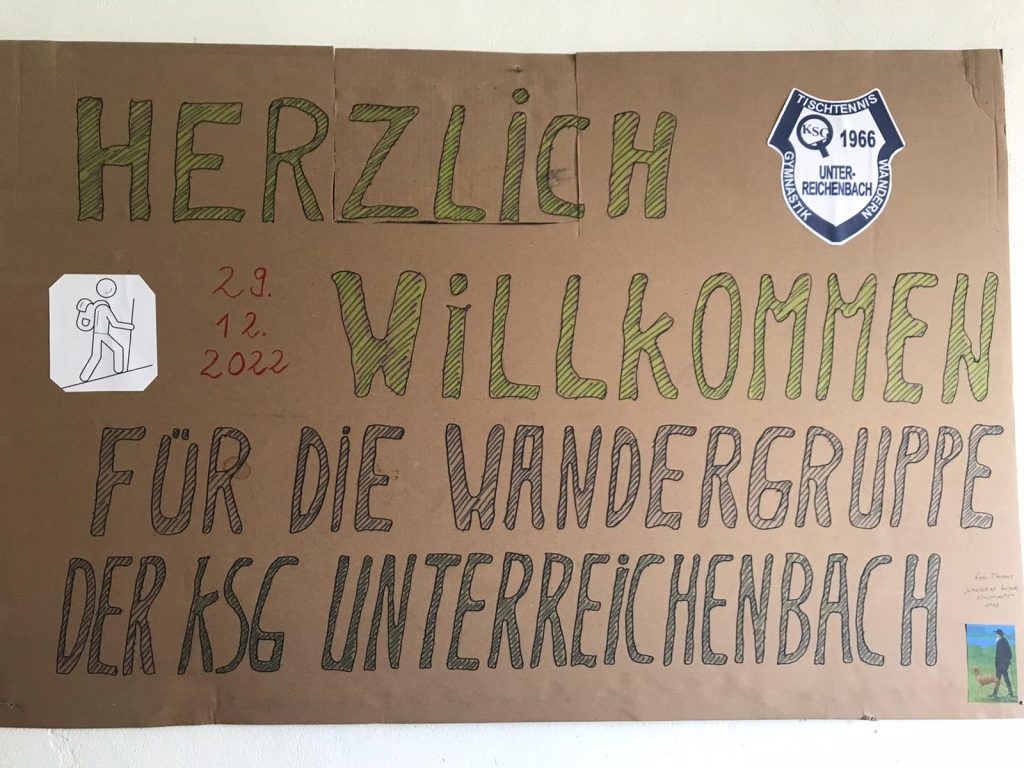 HERZLiCH
TISCHTENNIS
KSG
1966
UNTER-
REICHENBACH
GYMNASTIK
WANDERN
29.
12.
2022
WiLLkOMMEN
FÜR DiE WANDERGRUPPE
DER kSG UNTERREiCHENBACH
Thomas